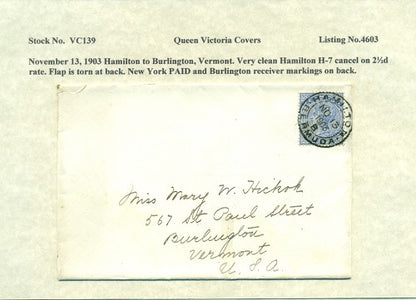 Stock No. VC139 Queen Victoria Covers Listing No.4603
November 13, 1903 Hamilton to Burlington, Vermont. Very clean Hamilton H-7 cancel on 2½d
rate. Flap is torn at back. New York PAID and Burlington receiver markings on back.
HAMILTON
BERMUDA
NO
Miss Mary W. Hickok
567 St Paul Street
Burlington
Vermont
U. S. A.